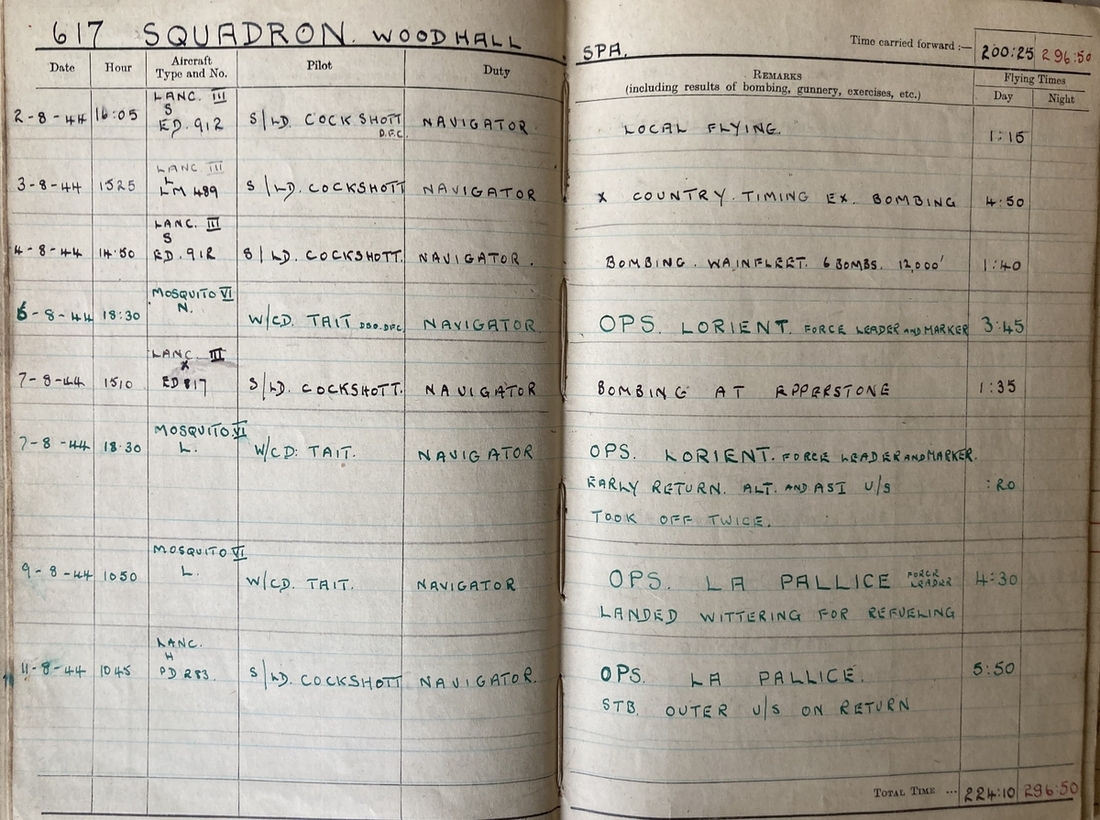 617 SQUADRON. WOODHALL SPA.
Time carried forward :— 200:25 296:50
Date Hour Aircraft Type and No. Pilot Duty REMARKS (including results of bombing, gunnery, exercises, etc.) Flying Times Day Night
2-8-44 16:05 LANC. III S ED.912 S/LD. COCKSHOTT D.F.C. NAVIGATOR LOCAL FLYING. 1:15
3-8-44 1525 LANC III L LM 489 S/LD. COCKSHOTT NAVIGATOR X COUNTRY. TIMING EX. BOMBING 4:50
4-8-44 14·50 LANC. III S ED.912 S/LD. COCKSHOTT. NAVIGATOR. BOMBING. WAINFLEET. 6 BOMBS. 12,000' 1:40
6-8-44 18:30 MOSQUITO VI N. W/CD. TAIT DSO.DFC. NAVIGATOR OPS. LORIENT. FORCE LEADER AND MARKER 3:45
7-8-44 1510 LANC. III X ED817 S/LD. COCKSHOTT. NAVIGATOR BOMBING AT EPPERSTONE 1:35
7-8-44 18·30 MOSQUITO VI L. W/CD. TAIT. NAVIGATOR OPS. LORIENT. FORCE LEADER AND MARKER.
EARLY RETURN. ALT. AND ASI U/S :20
TOOK OFF TWICE.
9-8-44 1050 MOSQUITO VI L. W/CD. TAIT. NAVIGATOR OPS. LA PALLICE FORCE LEADER 4:30
LANDED WITTERING FOR REFUELING
11-8-44 1045 LANC. H PD 283. S/LD. COCKSHOTT NAVIGATOR. OPS. LA PALLICE. 5:50
STB. OUTER U/S ON RETURN
TOTAL TIME ... 224:10 296:50